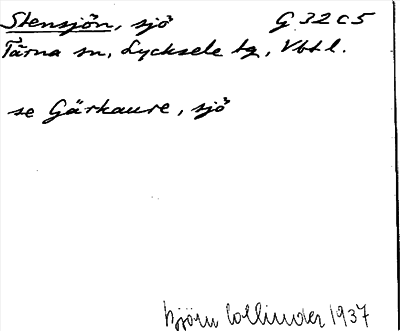 Stensjön, sjö G 32 c 5
Tärna sn, Lycksele tg, Vbtl.
se Gärkaure, sjö
Björn Collinder 1937